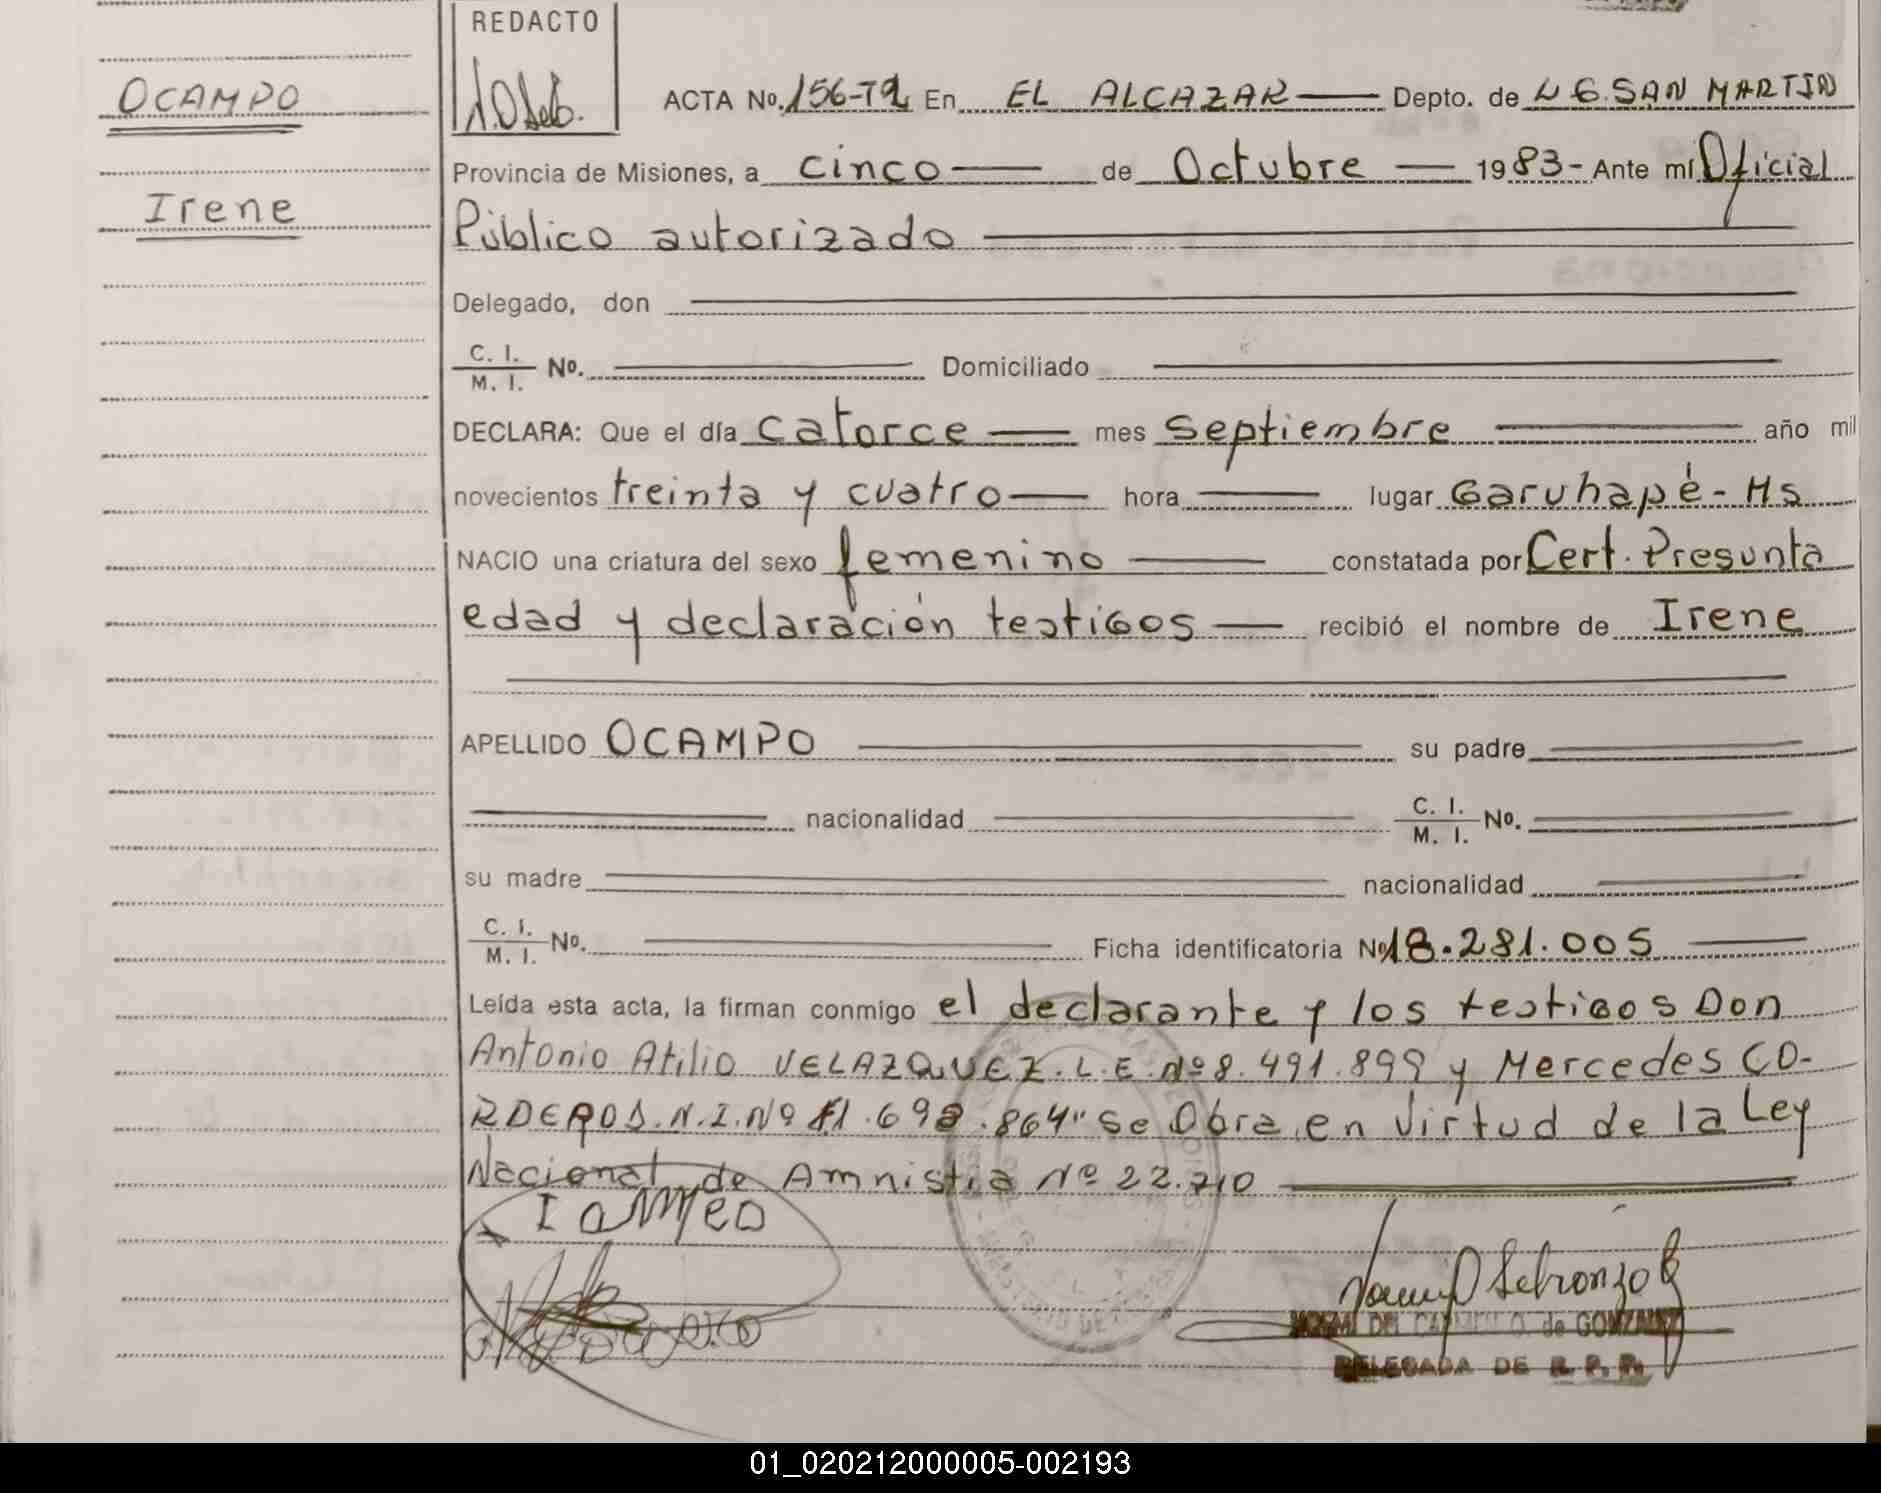 REDACTO
OCAMPO
Irene
ACTA No. 156-T2 En EL ALCAZAR Depto. de L G. SAN MARTIN
Provincia de Misiones, a cinco de Octubre 1983- Ante mí Oficial
Público autorizado
Delegado, don
C. I.
M. I. No. Domiciliado
DECLARA: Que el día catorce mes septiembre año mil
novecientos treinta y cuatro hora lugar Garuhapé-Ms
NACIO una criatura del sexo femenino constatada por Cert. Presunta
edad y declaración testigos recibió el nombre de Irene
APELLIDO OCAMPO su padre
nacionalidad C. I.
M. I. No.
su madre nacionalidad
C. I.
M. I. No. Ficha identificatoria No 18.281.005
Leída esta acta, la firman conmigo el declarante y los testigos Don
Antonio Atilio VELAZQUEZ. L.E. Nº 8.491.899 y Mercedes CO-
RDERO D.N.I. Nº 11.698.864" se Obra en Virtud de la Ley
Nacional de Amnistia Nº 22.710
DE GONZALEZ
DELEGADA DE R. P. P.
01_020212000005-002193